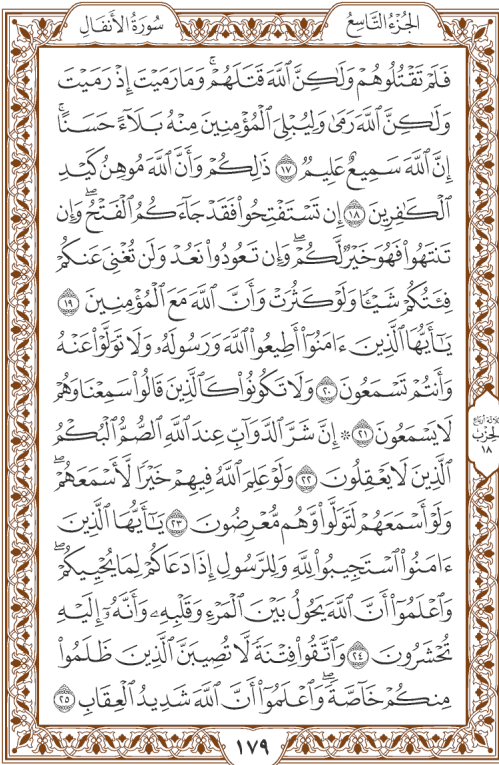 الجُزْءُ التَّاسِعُ
سُورَةُ الأَنفَالِ
فَلَمْ تَقْتُلُوهُمْ وَلَٰكِنَّ ٱللَّهَ قَتَلَهُمْۚ وَمَا رَمَيْتَ إِذْ رَمَيْتَ
وَلَٰكِنَّ ٱللَّهَ رَمَىٰ وَلِيُبْلِيَ ٱلْمُؤْمِنِينَ مِنْهُ بَلَآءً حَسَنًاۚ
إِنَّ ٱللَّهَ سَمِيعٌ عَلِيمٌ ١٧ ذَٰلِكُمْ وَأَنَّ ٱللَّهَ مُوهِنُ كَيْدِ
ٱلْكَٰفِرِينَ ١٨ إِن تَسْتَفْتِحُوا۟ فَقَدْ جَآءَكُمُ ٱلْفَتْحُۖ وَإِن
تَنتَهُوا۟ فَهُوَ خَيْرٌ لَّكُمْۖ وَإِن تَعُودُوا۟ نَعُدْ وَلَن تُغْنِيَ عَنكُمْ
فِئَتُكُمْ شَيْـًٔا وَلَوْ كَثُرَتْ وَأَنَّ ٱللَّهَ مَعَ ٱلْمُؤْمِنِينَ ١٩
يَٰٓأَيُّهَا ٱلَّذِينَ ءَامَنُوٓا۟ أَطِيعُوا۟ ٱللَّهَ وَرَسُولَهُۥ وَلَا تَوَلَّوْا۟ عَنْهُ
وَأَنتُمْ تَسْمَعُونَ ٢٠ وَلَا تَكُونُوا۟ كَٱلَّذِينَ قَالُوا۟ سَمِعْنَا وَهُمْ
لَا يَسْمَعُونَ ٢١ ۞ إِنَّ شَرَّ ٱلدَّوَآبِّ عِندَ ٱللَّهِ ٱلصُّمُّ ٱلْبُكْمُ
ٱلَّذِينَ لَا يَعْقِلُونَ ٢٢ وَلَوْ عَلِمَ ٱللَّهُ فِيهِمْ خَيْرًا لَّأَسْمَعَهُمْۖ
وَلَوْ أَسْمَعَهُمْ لَتَوَلَّوا۟ وَّهُم مُّعْرِضُونَ ٢٣ يَٰٓأَيُّهَا ٱلَّذِينَ
ءَامَنُوا۟ ٱسْتَجِيبُوا۟ لِلَّهِ وَلِلرَّسُولِ إِذَا دَعَاكُمْ لِمَا يُحْيِيكُمْۖ
وَٱعْلَمُوٓا۟ أَنَّ ٱللَّهَ يَحُولُ بَيْنَ ٱلْمَرْءِ وَقَلْبِهِۦ وَأَنَّهُۥٓ إِلَيْهِ
تُحْشَرُونَ ٢٤ وَٱتَّقُوا۟ فِتْنَةً لَّا تُصِيبَنَّ ٱلَّذِينَ ظَلَمُوا۟
مِنكُمْ خَآصَّةًۖ وَٱعْلَمُوٓا۟ أَنَّ ٱللَّهَ شَدِيدُ ٱلْعِقَابِ ٢٥
ثلاثة أرباع
الحزب
١٨
١٧٩